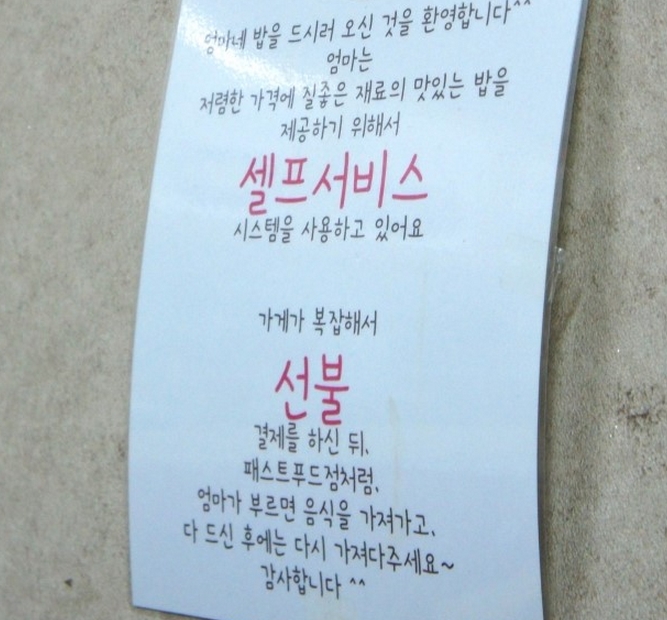 엄마네 밥을 드시러 오신 것을 환영합니다^^
엄마는
저렴한 가격에 질좋은 재료의 맛있는 밥을
제공하기 위해서
셀프서비스
시스템을 사용하고 있어요
가게가 복잡해서
선불
결제를 하신 뒤,
패스트푸드점처럼,
엄마가 부르면 음식을 가져가고,
다 드신 후에는 다시 가져다주세요~
감사합니다 ^^